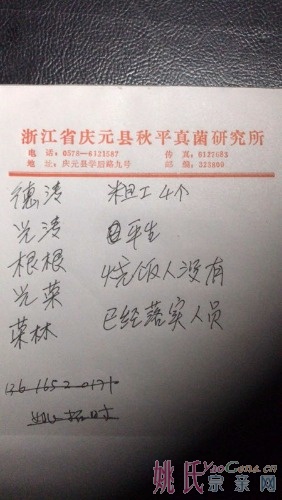 浙江省庆元县秋平真菌研究所
电 话：0578-6121587 传 真：6127683
地 址：庆元县学后路九号 邮 编：323800
德清 粗工4个
光清 平生
根根 烧饭人没有
光菜
菜林 已经落实人员
姚氏 YaoGene.cn
宗亲网